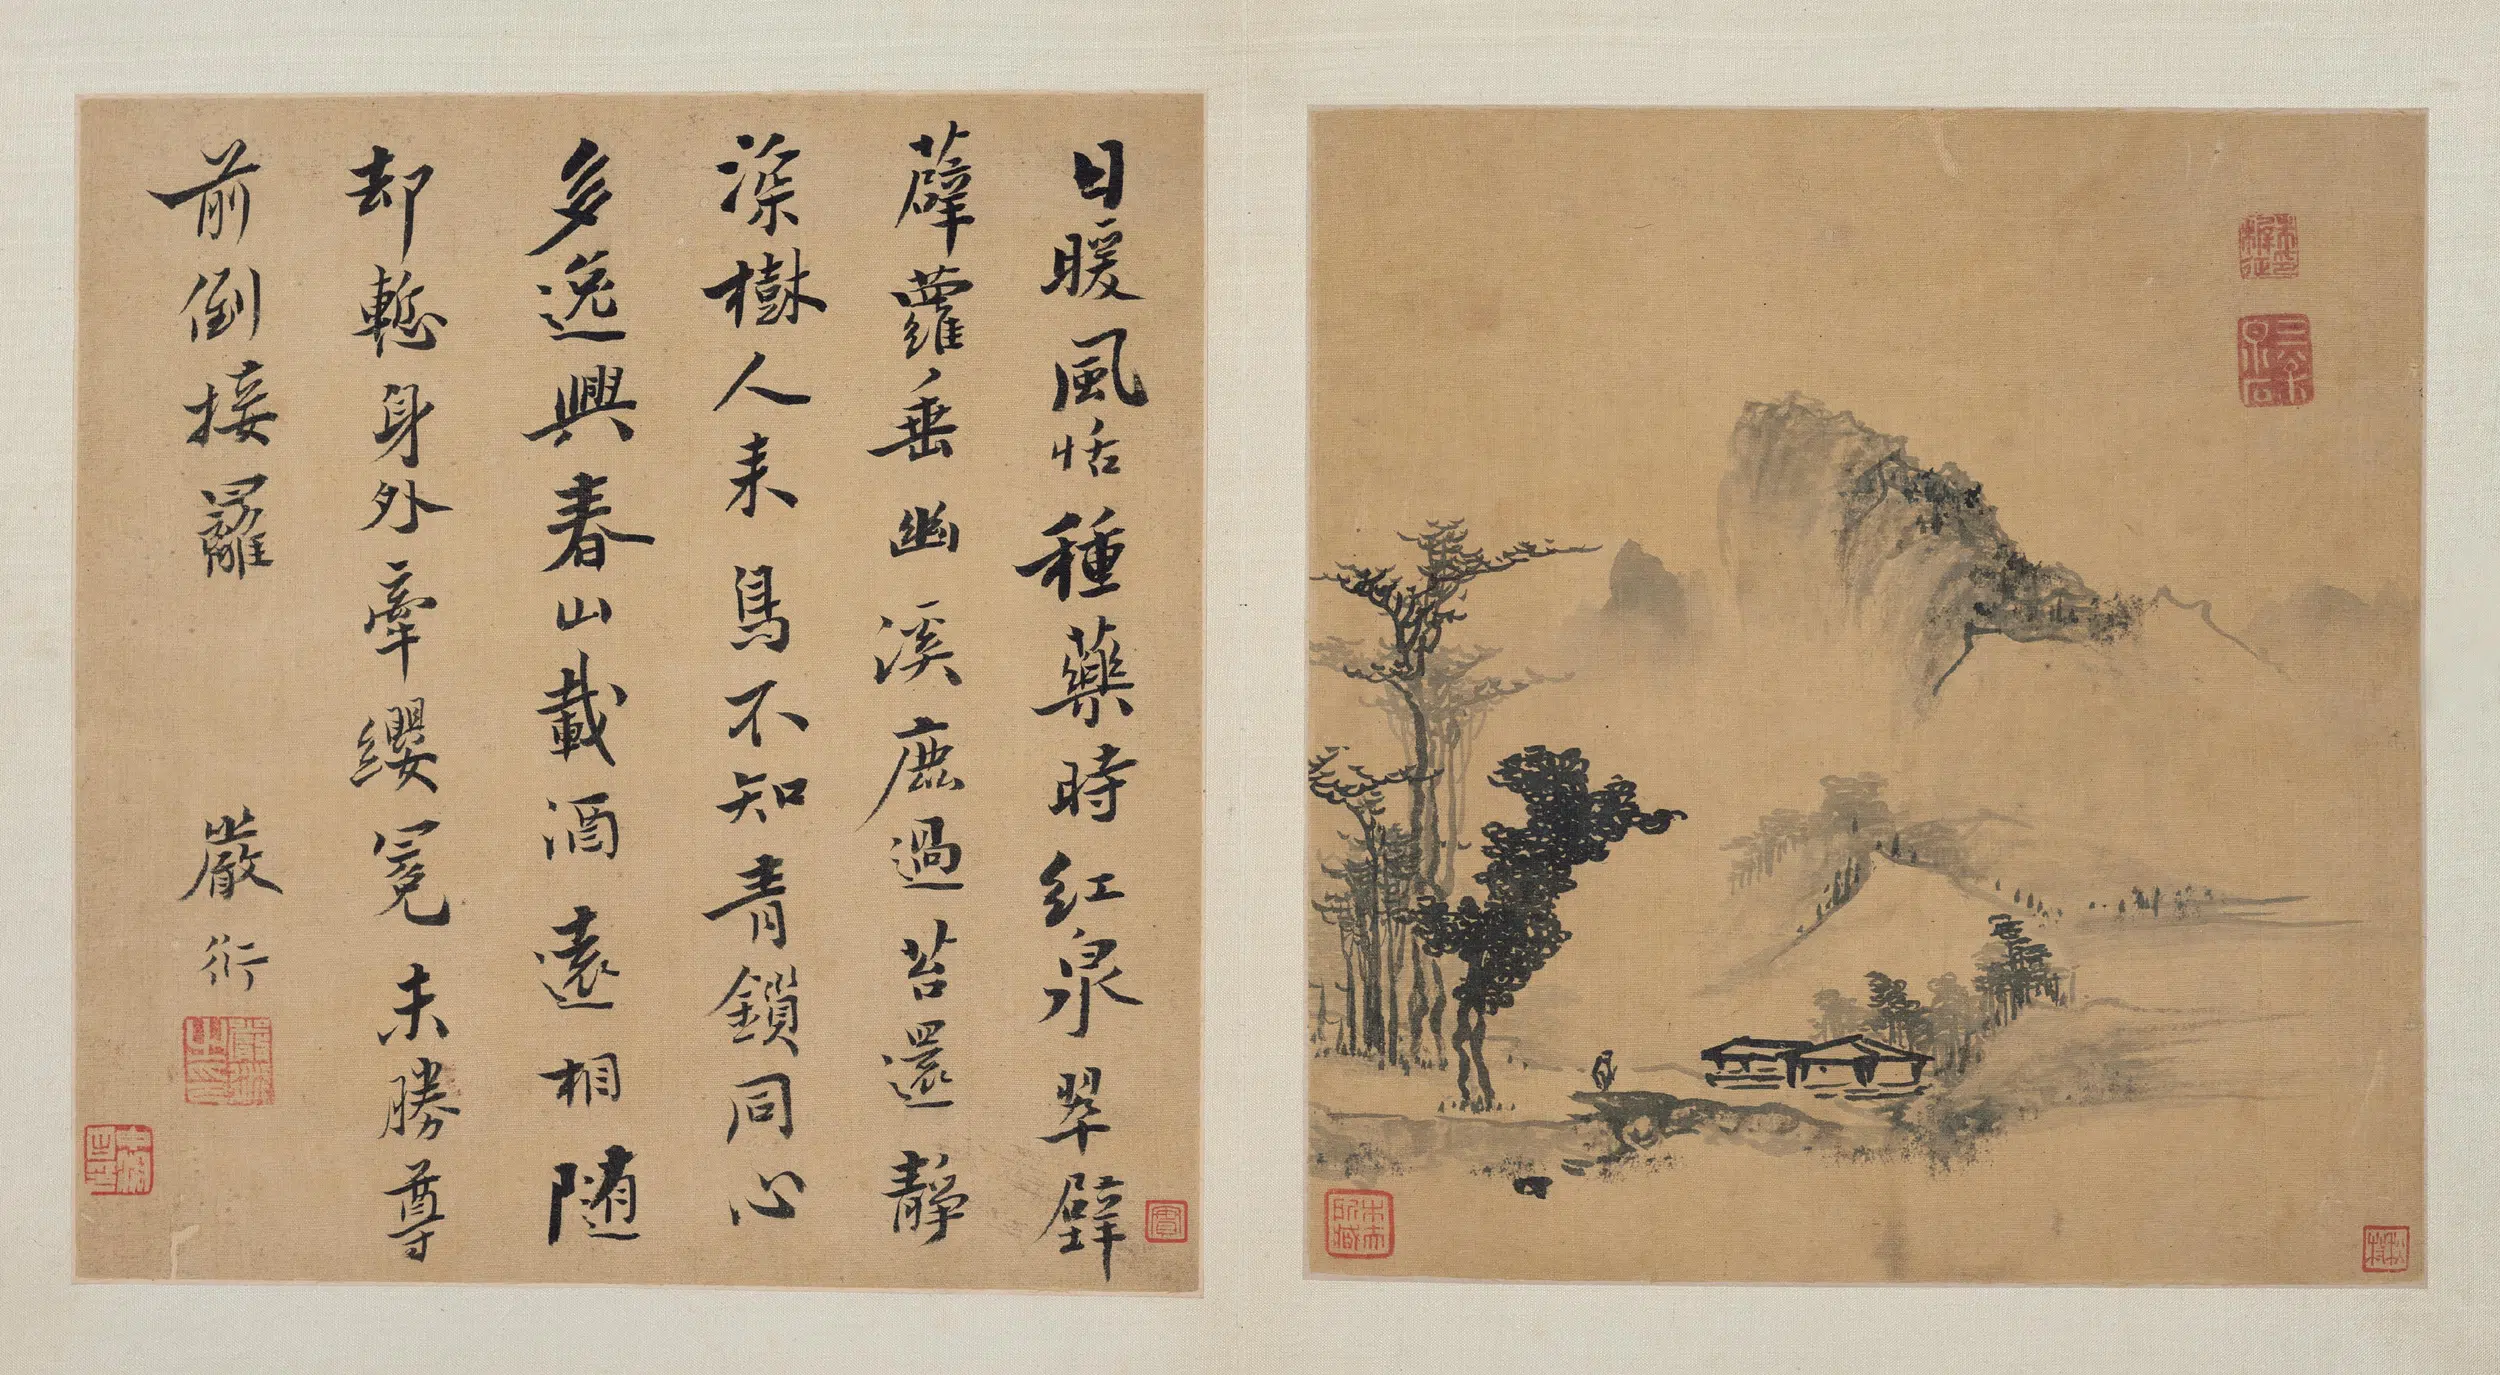 日暖風恬種藥時紅泉翠壁
薜蘿垂幽溪鹿過苔還靜
深樹人來鳥不知青鎖同心
多逸興春山載酒遠相隨
却慙身外牽纓冕未勝尊
前倒接䍦
嚴衍